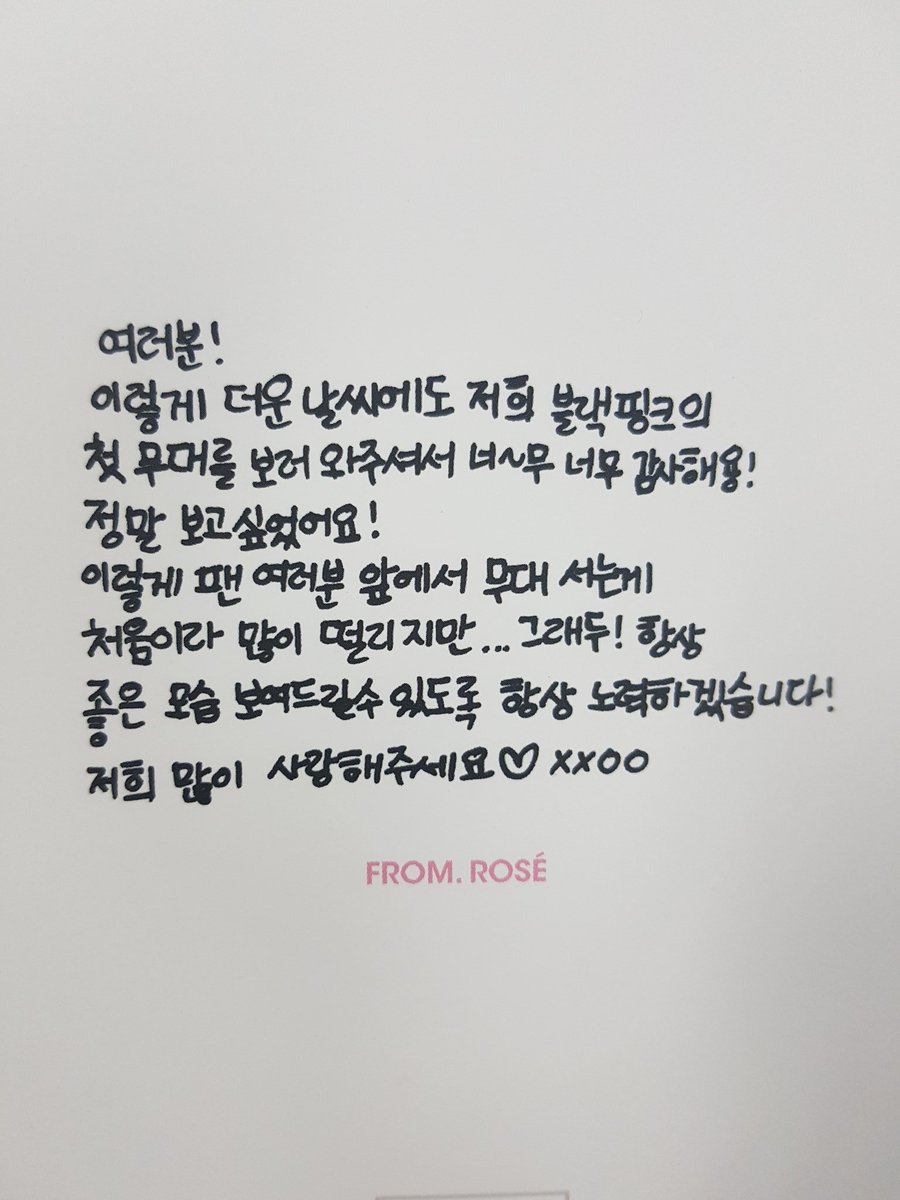 여러분!
이렇게 더운 날씨에도 저희 블랙핑크의
첫 무대를 보러 와주셔서 너~무 너무 감사해용!
정말 보고싶었어요!
이렇게 팬 여러분 앞에서 무대 서는게
처음이라 많이 떨리지만... 그래두! 항상
좋은 모습 보여드릴수 있도록 항상 노력하겠습니다!
저희 많이 사랑해주세요♡ xxoo
FROM. ROSÉ